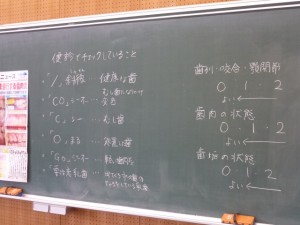 健診でチェックしていること
・「/」斜線 … 健康な歯
むし歯になりかけ
・「CO」シーオー … 要観察
・「C」シー … むし歯
・「O」まる … 処置した歯
・「GO」ジーオー … 軽い歯肉炎
・要注意乳歯 …
歯列・咬合・顎関節
0・1・2
よい←
歯肉の状態
0・1・2
よい←
歯垢の状態
0・1・2
よい←